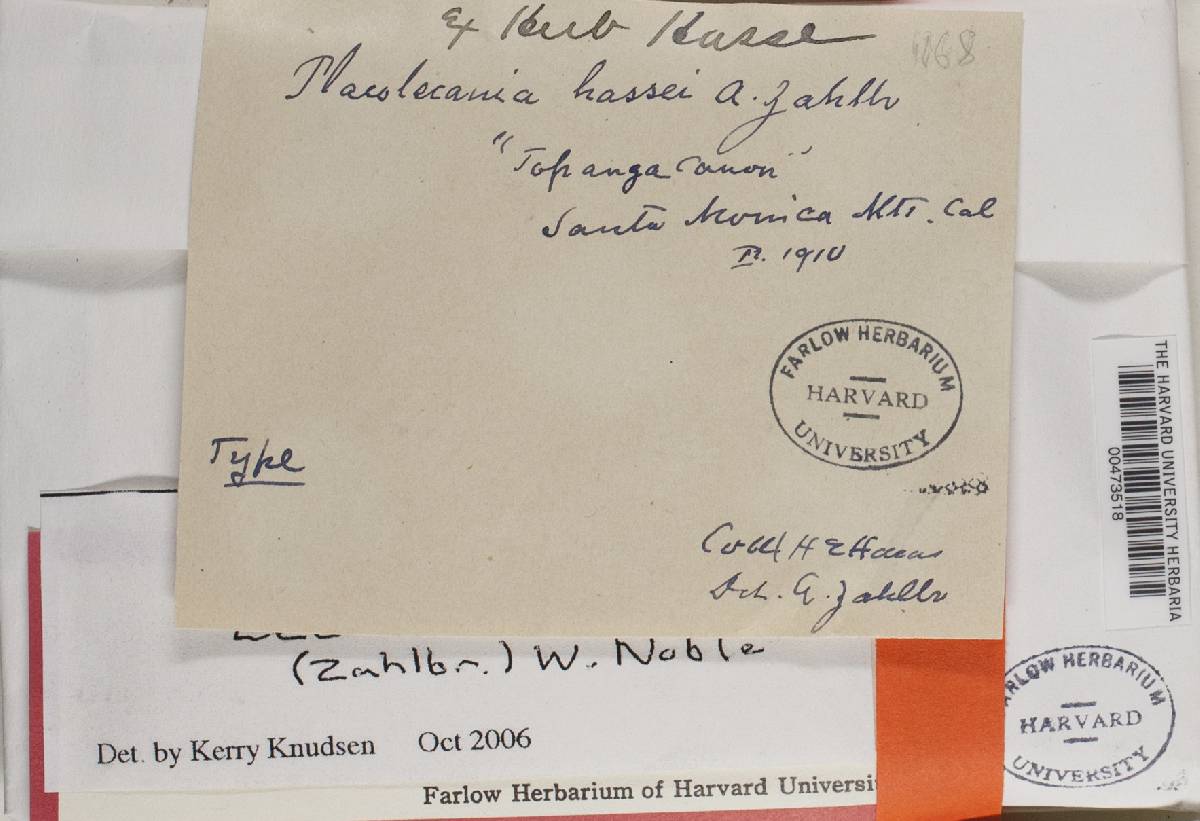 Ex Herb Hasse
1168
Placolecania hassei A. Zahlbr
"Topanga Canon"
Santa Monica Mts. Cal
1910
FARLOW HERBARIUM
HARVARD
UNIVERSITY
Type
Coll H E Hasse
Det. A. Zahlbr
(Zahlbr.) W. Noble
Det. by Kerry Knudsen Oct 2006
Farlow Herbarium of Harvard Universi
THE HARVARD UNIVERSITY HERBARIA
00473518
FARLOW HERBARIUM
HARVARD
UNIVERSITY